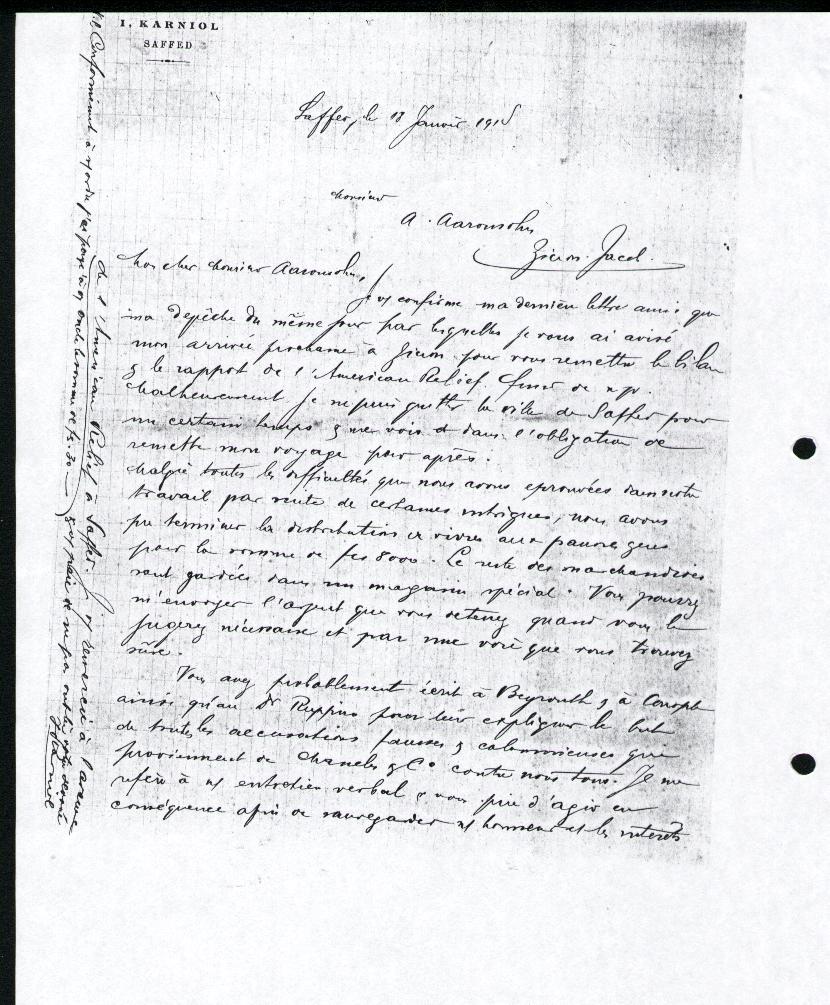 I. KARNIOL
SAFFED
Saffed, le 18 Janvier 1915
Monsieur
A. Aaronsohn
Zicron-Jacob.
Mon cher Monsieur Aaronsohn,
Je vs confirme ma dernière lettre ainsi que
ma depêche du même jour par lesquelles je vous ai avisé
mon arrivée prochaine à Zicron pour vous remettre le bilan
& le rapport de l'American Relief Fund de
Malheureusement je ne puis quitter la ville de Saffed pour
un certain temps & me vois dans l'obligation de
remettre mon voyage pour après.
Malgré toutes les difficultés que nous avons eprouvées dans notre
travail par suite de certaines intrigues, nous avons
pu terminer la distribution en vivres aux pauvres gens
pour la somme de fcs 8000. Le reste des marchandises
sont gardées dans un magasin spécial. Vous pouvez
m'envoyer l'argent que vous retenez quand vous le
jugerez nécessaire et par une voie que vous trouvez
sûre.
Vous avez probablement écrit à Beyrouth & à Constple
ainsi qu'au Dr Ruppin pour leur expliquer le but
de toutes les accusations fausses & calomnieuses qui
proviennent de & Co contre nous tous. Je me
refère à ns entretien verbal & vous prie d'agir en
conséquence afin de sauvegarder ns honneur et les intérêts
de l'American Relief à Saffed. Je vs remercie à l'avance
NB Conformément à vs ordre j'ai payé à vs oncle la somme de fcs. 30
I Karniol